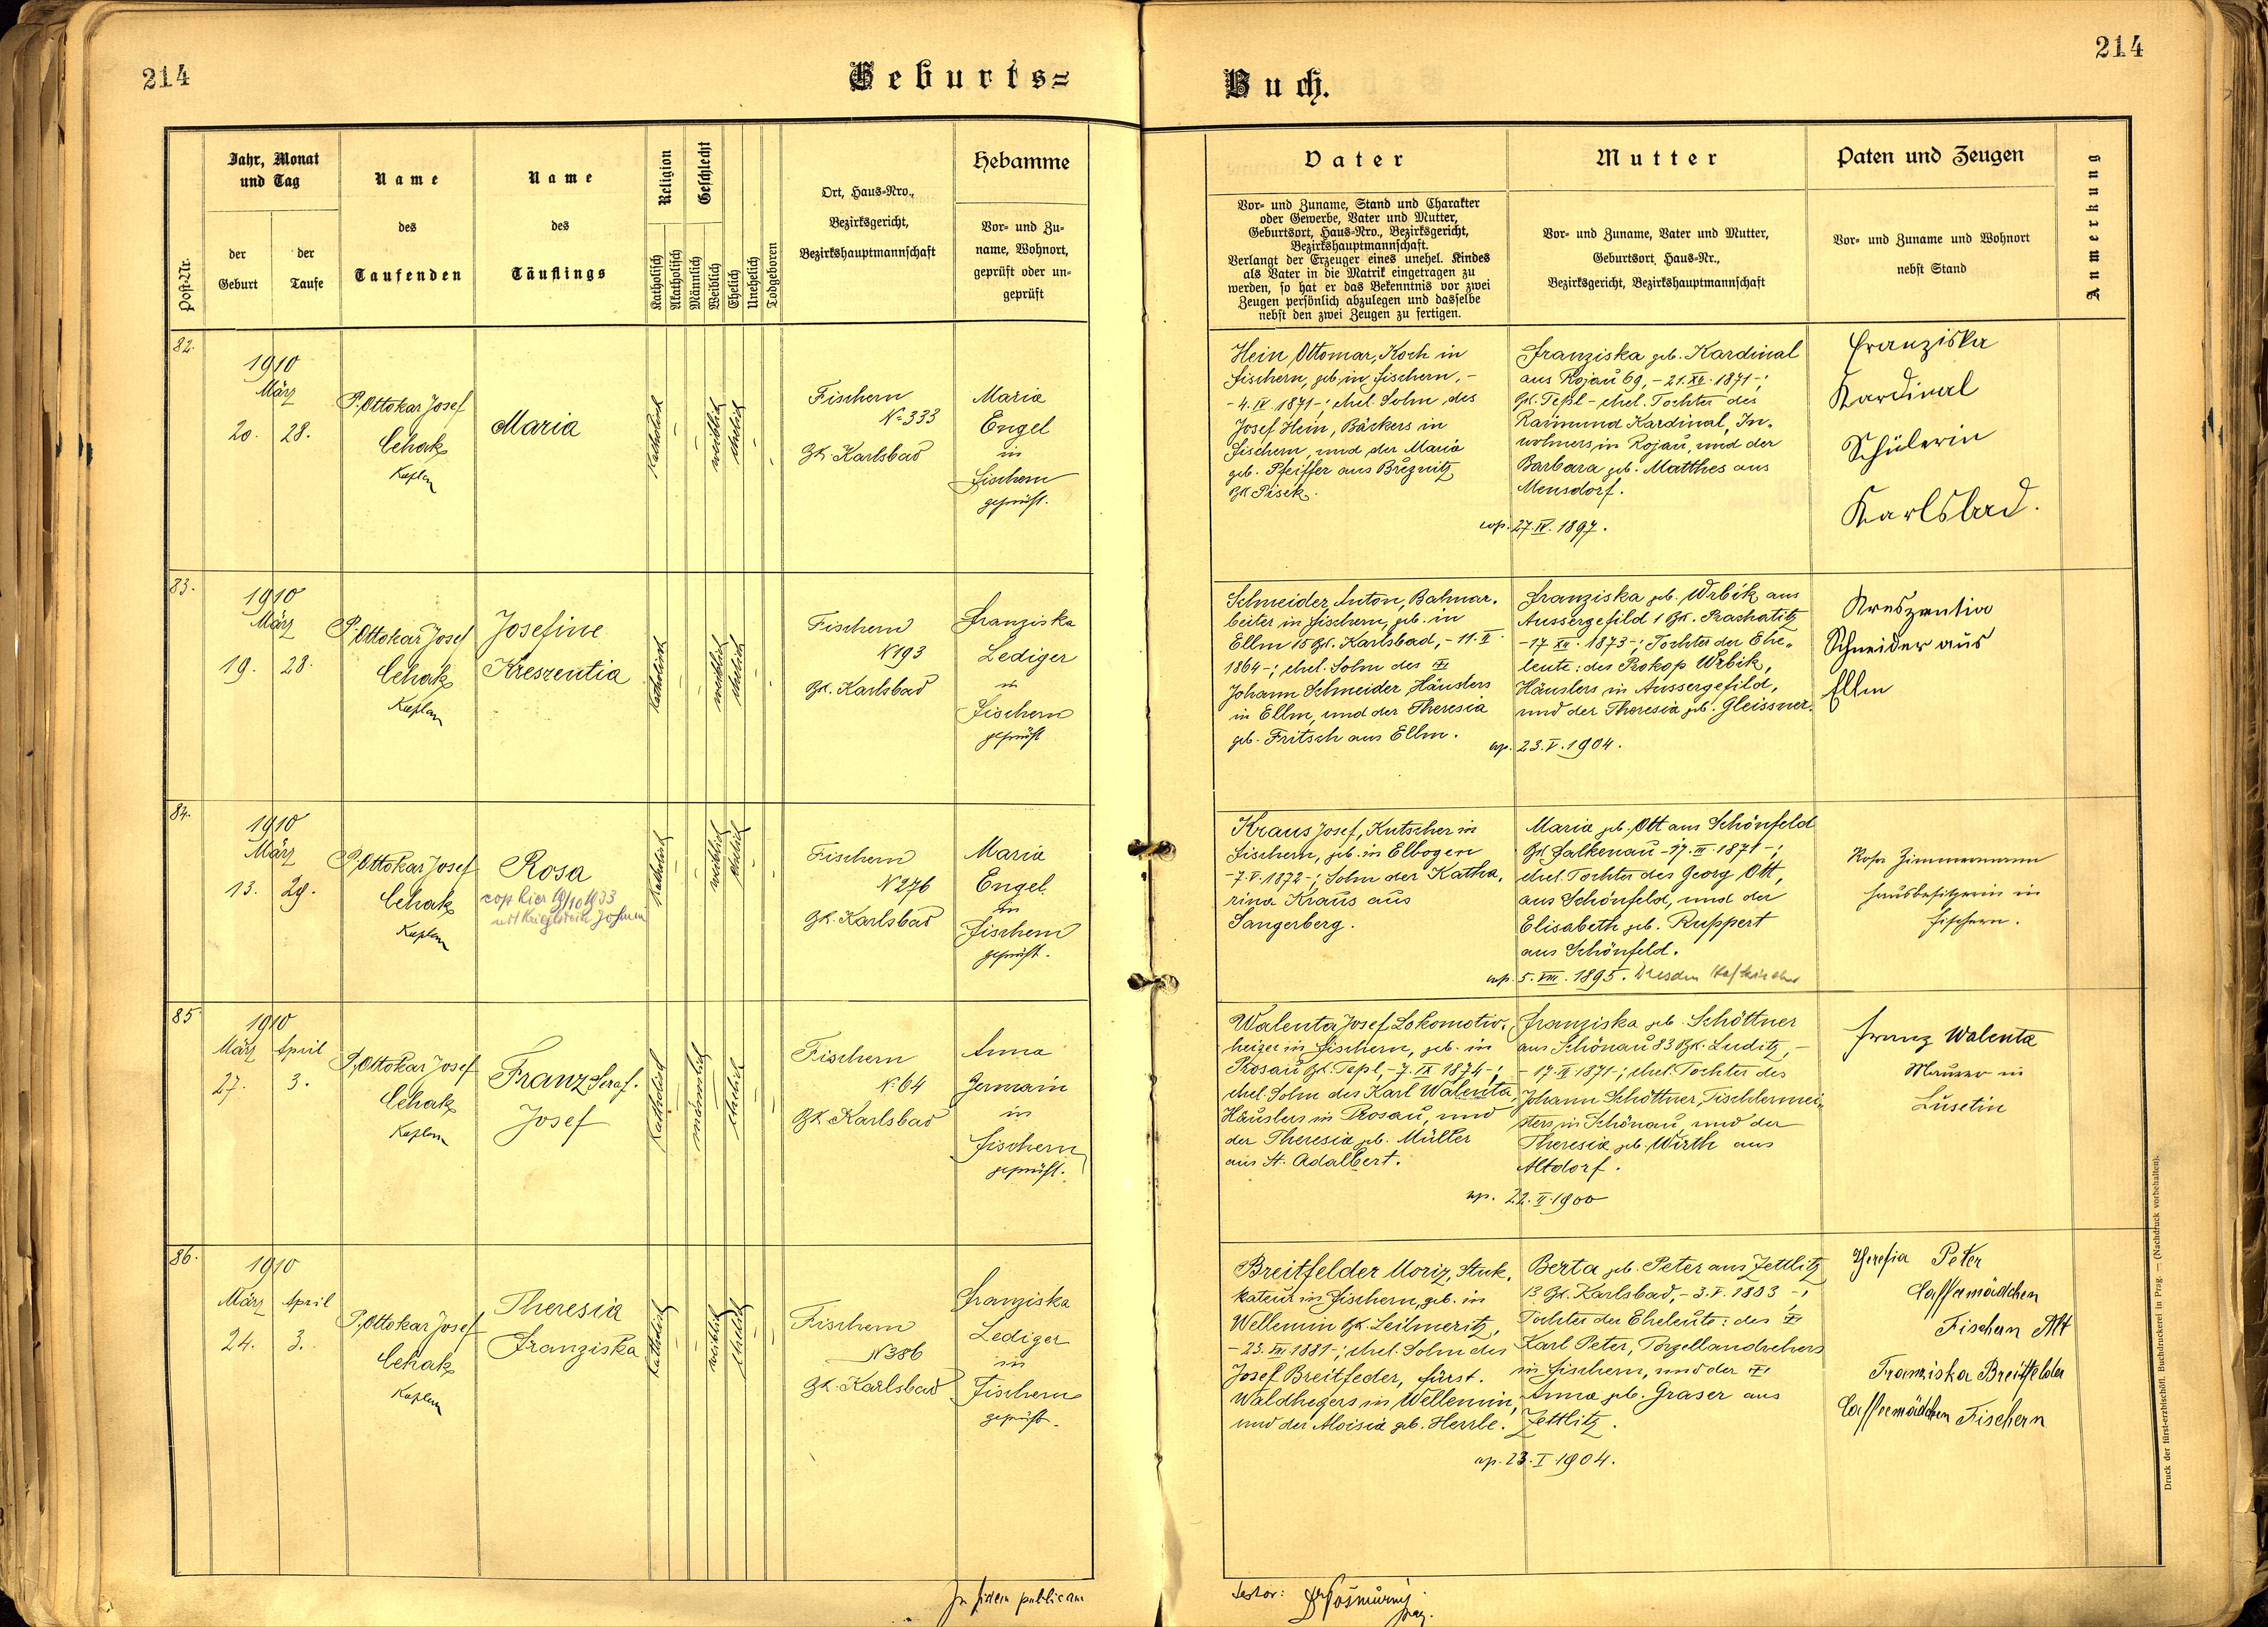 214
Geburts=
Buch.
214
Post-Nr.
Jahr, Monat
und Tag
der
Geburt
der
Taufe
Name
des
Taufenden
Name
des
Täuflings
Religion
Katholisch
Akatholisch
Geschlecht
Männlich
Weiblich
Ehelich
Unehelich
Todgeboren
Ort, Haus-Nro.,
Bezirksgericht,
Bezirkshauptmannschaft
Hebamme
Vor- und Zu-
name, Wohnort,
geprüft oder un-
geprüft
Vater
Vor- und Zuname, Stand und Charakter
oder Gewerbe, Vater und Mutter,
Geburtsort, Haus-Nro., Bezirksgericht,
Bezirkshauptmannschaft.
Verlangt der Erzeuger eines unehel. Kindes
als Vater in die Matrik eingetragen zu
werden, so hat er das Bekenntnis vor zwei
Zeugen persönlich abzulegen und dasselbe
nebst den zwei Zeugen zu fertigen.
Mutter
Vor- und Zuname, Vater und Mutter,
Geburtsort, Haus-Nr.,
Bezirksgericht, Bezirkshauptmannschaft
Paten und Zeugen
Vor- und Zuname und Wohnort
nebst Stand
Anmerkung
82.
1910
März
20. 28.
P. Ottokar Josef
Cehak
Kaplan
Maria
katholisch
weiblich
ehelich
Fischern
No 333
Gk. Karlsbad
Maria
Engel
in
Fischern
geprüft.
Hein Ottomar, Koch in
Fischern, geb. in Fischern, -
- 4. IV. 1871 -; ehel. Sohn des
Josef Hein, Bäckers in
Fischern, und der Maria
geb. Pfeiffer aus Březnitz
Gk Pisek.
Franziska geb. Kardinal
aus Rojau 69, - 21. XII. 1871 -;
Gk. Tepl - ehel. Tochter des
Raimund Kardinal, In-
wohners in Rojau, und der
Barbara geb. Matthes aus
Mensdorf.
cop. 27. IV. 1897.
Franziska
Kardinal
Schülerin
Karlsbad.
83.
1910
März
19. 28.
P. Ottokar Josef
Cehak
Kaplan
Josefine
Kreszentia
katholisch
weiblich
ehelich
Fischern
N 193
Gk. Karlsbad
Franziska
Lediger
in
Fischern
geprüft
Schneider Anton, Bahnar-
beiter in Fischern, geb. in
Ellm 15 Gk. Karlsbad, - 11. II.
1864 -; ehel. Sohn des
Johann Schneider, Häuslers
in Ellm, und der Theresia
geb. Fritsch aus Ellm.
Franziska geb. Wrbik aus
Aussergefild 1 Gk. Prachatitz
- 17. XII. 1873 -; Tochter der Ehe-
leute: des Prokop Wrbik,
Häuslers in Aussergefild,
und der Theresia geb. Gleissner.
cop. 23. V. 1904.
Kreszentia
Schneider aus
Ellm
84.
1910
März
13. 29.
P. Ottokar Josef
Cehak
Kaplan
Rosa
cop hier 19/10 1933
mit Kriegstein Johann
katholisch
weiblich
ehelich
Fischern
N 276
Gk. Karlsbad
Maria
Engel
in
Fischern
geprüft.
Kraus Josef, Kutscher in
Fischern, geb. in Elbogen
- 7. V. 1872 -; Sohn der Katha-
rina Kraus aus
Sangerberg.
Maria geb. Ott aus Schönfeld
Gk Falkenau - 17. III. 1871 -;
ehel. Tochter des Georg Ott,
aus Schönfeld, und der
Elisabeth geb. Ruppert
aus Schönfeld.
cop. 5. VIII. 1895. Dresden Hofkirche
Rosa Zimmermann
Hausbesitzerin in
Fischern.
85.
1910
März April
27. 3.
P. Ottokar Josef
Cehak
Kaplan
Franz Seraf.
Josef
katholisch
männlich
ehelich
Fischern
No 64
Gk Karlsbad
Anna
Germain
in
Fischern
geprüft.
Walenta Josef Lokomotiv-
heizer in Fischern, geb. in
Prosau Gk. Tepl, - 7. IX 1874 -;
ehel. Sohn des Karl Walenta,
Häuslers in Prosau, und
der Theresia geb. Müller
aus St. Adalbert.
Franziska geb. Schöttner
aus Schönau 83 Gk. Luditz, -
- 17. II 1871 -; ehel. Tochter des
Johann Schöttner, Tischlermei-
sters, in Schönau, und der
Theresia geb. Wirth aus
Altdorf.
cop. 22. II. 1900
Franz Walenta
Maurer in
Lusetin
86.
1910
März April
24. 3.
P. Ottokar Josef
Cehak
Kaplan
Theresia
Franziska
katholisch
weiblich
ehelich
Fischern
N 386
Gk. Karlsbad
Franziska
Lediger
in
Fischern
geprüft.
Breitfelder Moriz, Stuk-
kateur in Fischern, geb. in
Wellemin Gk. Leitmeritz,
- 23. VII 1881 -; ehel. Sohn des
Josef Breitfeder, fürst.
Waldhegers in Wellemin,
und der Aloisia geb. Herrle.
Berta geb. Peter aus Zettlitz
13 Gk. Karlsbad, - 3. V. 1883 -;
Tochter der Eheleute: des
Karl Peter, Porzellandrehers
in Fischern, und der
Anna geb. Graser aus
Zettlitz.
cop. 23. I. 1904.
Theresia Peter
Caffeemädchen
Fischern Alt
Franziska Breitfelder
Caffeemädchen Fischern
In fidem publicam
Druck der fürst-erzbischöfl. Buchdruckerei in Prag. — (Nachdruck vorbehalten).